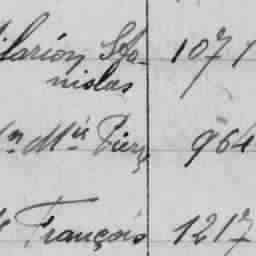 ilarion Sta- 107
nislas
Mie Pierre 964
François 1217